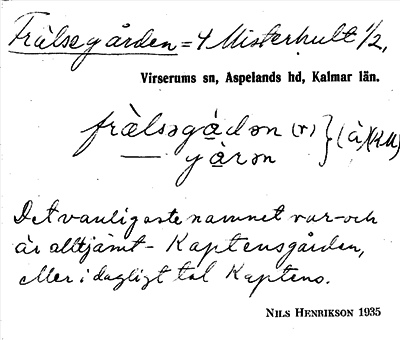 Frälsegården = 4 Misterhult 1/2,
Virserums sn, Aspelands hd, Kalmar län.
frälsegådən (r) } (à)(KU)
— gårn
Det vanligaste namnet var och
är alltjämt - Kaptensgården,
eller i dagligt tal Kaptens.
NILS HENRIKSON 1935